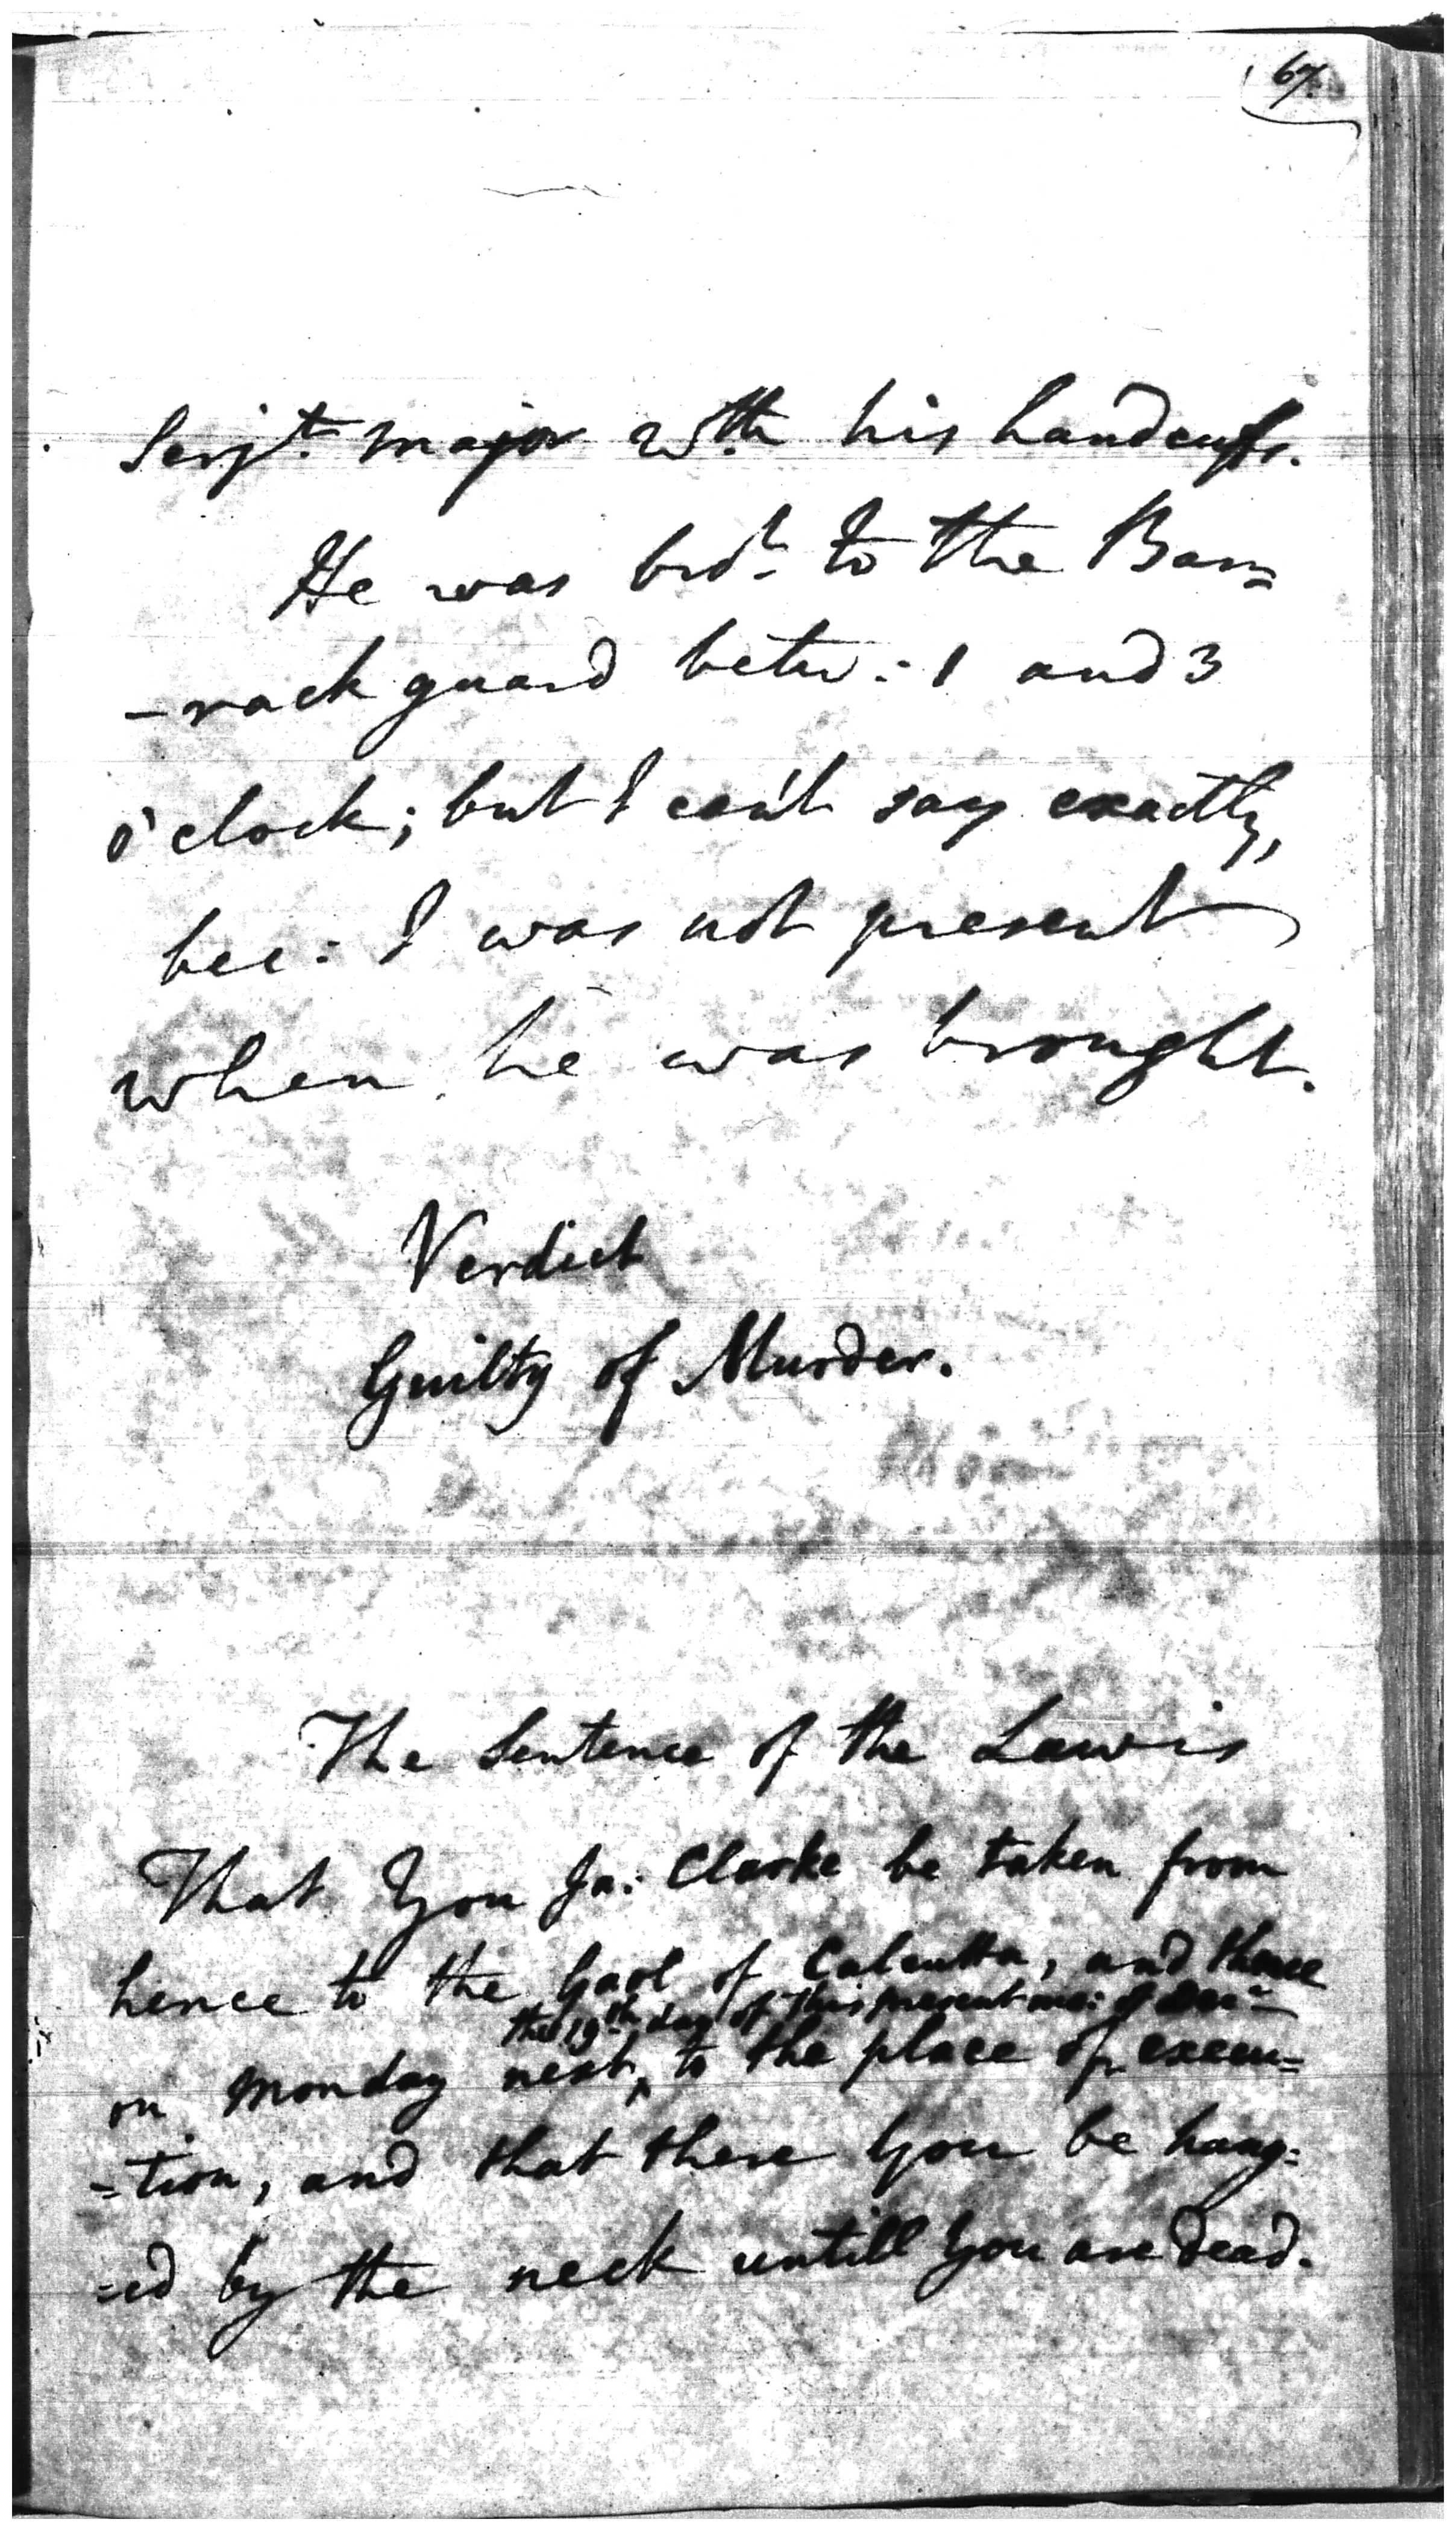 67.
Serjt. major wth his handcuffs.
He was brot. to the Bar=
-rack guard betw: 1 and 3
o'clock; but I can't say exactly,
bec: I was not present
when he was brought.
Verdict
Guilty of Murder.
The Sentence of the Law is
That You Ja: Clarke be taken from
hence to the Gaol of Calcutta, and thence
the 19th day of this present mo: of Decr
on Monday next, ^ to the place of execu=
=tion, and that there You be hang=
=ed by the neck untill You are dead.